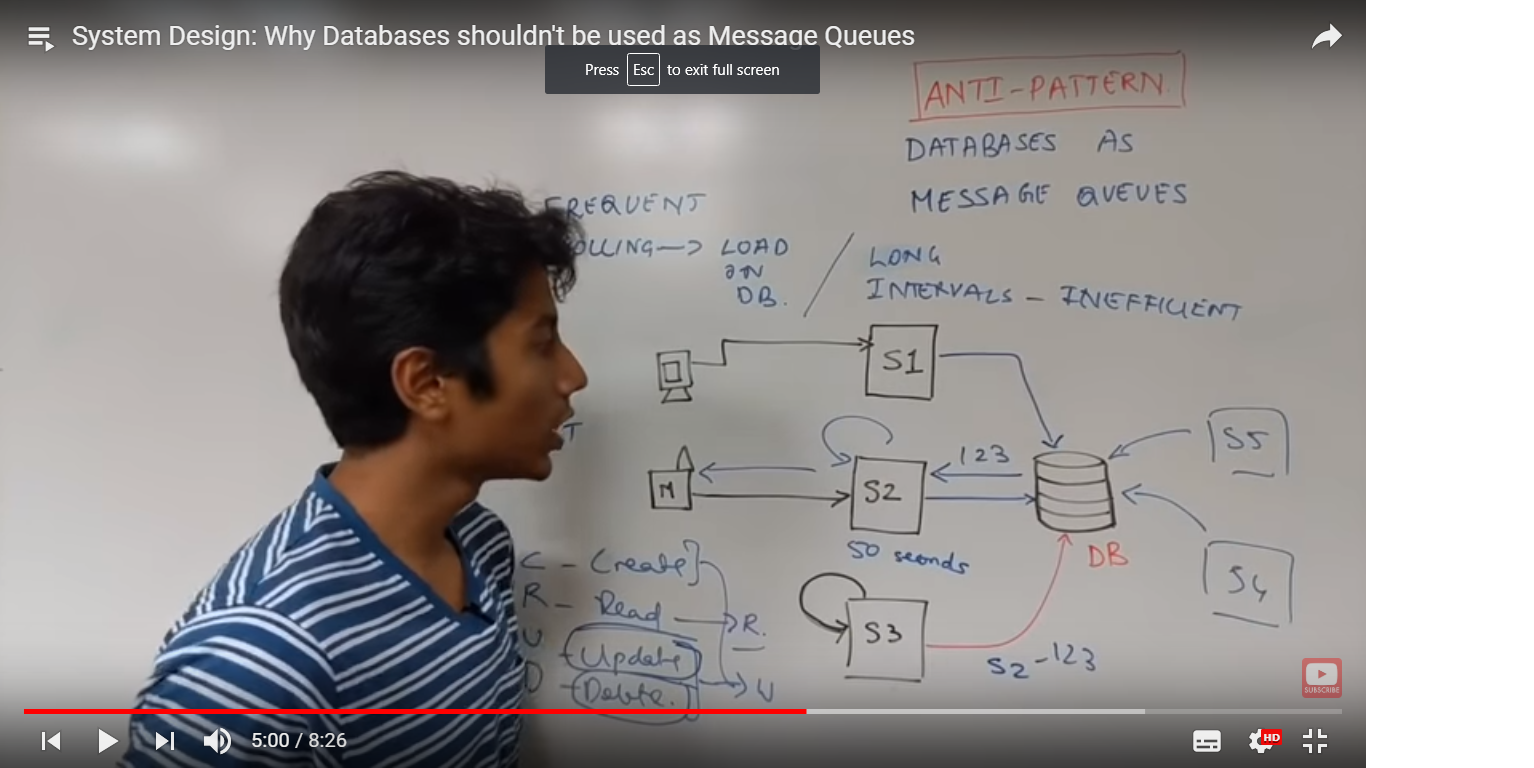 System Design: Why Databases shouldn't be used as Message Queues
Press Esc to exit full screen
ANTI-PATTERN.
DATABASES AS
MESSAGE QUEUES
FREQUENT
POLLING → LOAD
ON
DB.
LONG
INTERVALS - INEFFICIENT
S1
T
123
S5
M
S2
50 seconds
DB
S4
C - Create
R - Read → R.
U - Update
D - Delete. → W
S3
S2 - 123
SUBSCRIBE
5:00 / 8:26
HD